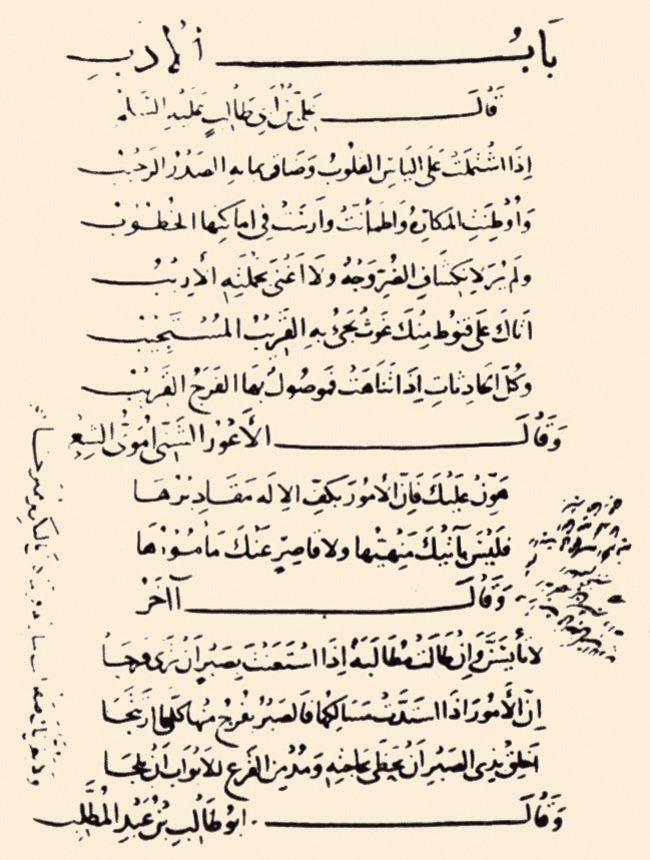 بَابُ الأدب
قَالَ علي بن أبي طالب عليه السلام
إذا اشتملت على اليأس القلوب وضاق بما به الصدر الرحيب
وأوطنت المكاره واطمأنت وأرست في أماكنها الخطوب
ولم ير لانكشاف الضر وجه ولا أغنى بحيلته الأريب
أتاك على قنوط منك غوث يجيء به القريب المستجيب
وكل الحادثات إذا تناهت فموصول بها الفرج القريب
وَقَالَ الأعور الشني أموي الشعر
هون عليك فإن الأمور بكف الإله مقاديرها
فليس بآتيك منهيها ولا قاصر عنك مأمورها
وَقَالَ آخر
لا تأيسن وإن طالت مطالبة إذا استعنت بصبر أن ترى فرجا
إن الأمور إذا استدت مسالكها فالصبر يفرج منها كلما ارتتجا
أخلق بذي الصبر أن يحظى بحاجته ومدمن القرع للأبواب أن يلجا
وَقَالَ أبو طالب بن عبد المطلب